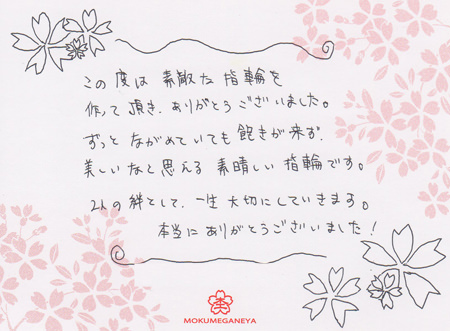 この度は素敵な指輪を
作って頂き、ありがとうございました。
ずっとながめていても飽きが来ず、
美しいなと思える素晴しい指輪です。
2人の絆として、一生大切にしていきます。
本当にありがとうございました!
MOKUMEGANEYA